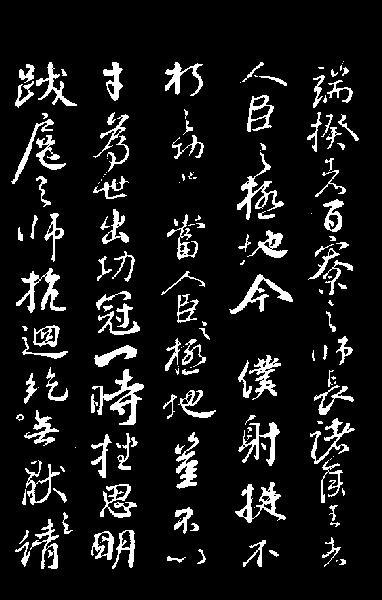 端揆者百寮之師長諸侯王者
人臣之極地今僕射挺不
朽之功業當人臣之極地豈不以
才為世出功冠一時挫思明
跋扈之師抗迴紇無厭之請